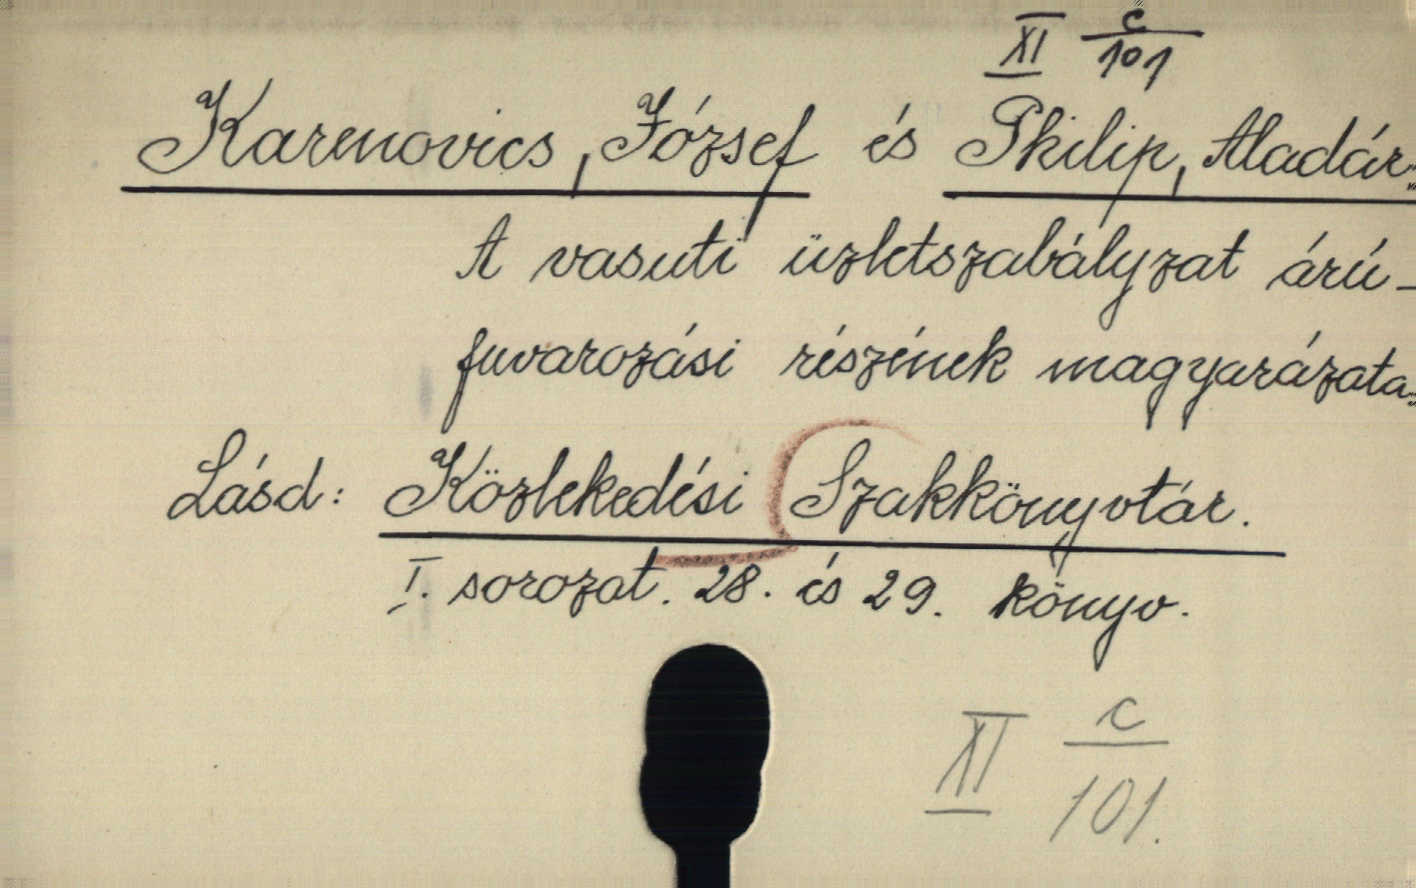 XI c/101
Karenovics, József és Philip, Aladár:
A vasuti üzletszabályzat árú-
fuvarozási részének magyarázata.
Lásd: Közlekedési Szakkönyvtár.
I. sorozat. 28. és 29. könyv.
XI c/101.